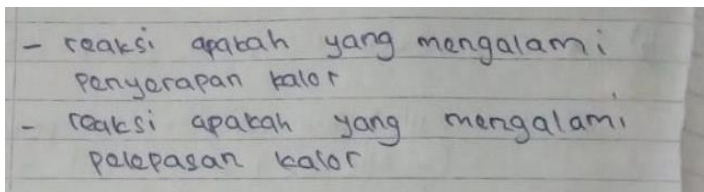 - reaksi apakah yang mengalami
penyerapan kalor
- reaksi apakah yang mengalami
pelepasan kalor